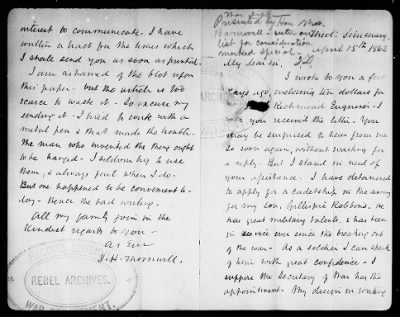 Presented by Hon. Mr.
Barnwell - enter on
list for consideration
marked special -
April 15th 1862
My dear sir.
I wrote to you a few
days ago, enclosing ten dollars for
Richmond Enquirer. I
hope you received the letter. You
may be surprised to hear from me
so soon again, without waiting for
a reply. But I stand in need of
your assistance. I have determined
to apply for a cadetship in the army
for my son, Gillespie Robbins. He
has great military talents, & has been
in service ever since the breaking out
of the war. As a soldier I can speak
of him with great confidence. I
suppose the Secretary of War has the
appointment. My design in writing
interest to communicate. I have
written a tract for the times which
I shall send you as soon as printed.
I am ashamed of the blot upon
this paper - but the article is too
scarce to waste it - so excuse my
sending it. I tried to write with a
metal pen & that made the trouble.
The man who invented them ought
to be hanged. I seldom try to use
them, & always foul when I do.
But one happened to be convenient to-
day - Hence the bad writing.
All my family join in the
kindest regards to you -
As Ever
J. H. Thornwell.
REBEL ARCHIVES.
WAR DEPARTMENT.
REBEL ARCHIVES